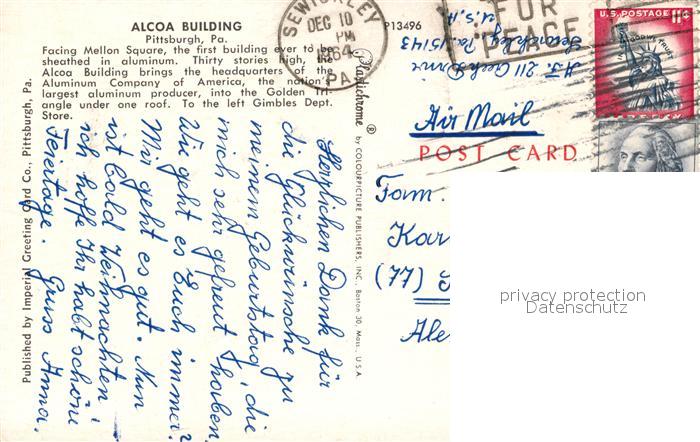 ALCOA BUILDING
Pittsburgh, Pa.
Facing Mellon Square, the first building ever to be
sheathed in aluminum. Thirty stories high, the
Alcoa Building brings the headquarters of the
Aluminum Company of America, the nation's
largest aluminum producer, into the Golden Tri-
angle under one roof. To the left Gimbles Dept.
Store.
Published by Imperial Greeting Card Co., Pittsburgh, Pa.
Herzlichen Dank für
die Glückwünsche zu
meinem Geburtstag, die
mich sehr gefreut haben.
Wie geht es Euch immer?
Mir geht es gut. Nun
ist bald Weihnachten
ich hoffe Ihr habt schöne
Feiertage. Gruss Anna.
Plastichrome ® by COLOURPICTURE PUBLISHERS, INC., Boston 30, Mass., U.S.A.
P13496
SEWICKLEY
DEC 10
PM
1964
PA
FOR
U.S. POSTAGE 11¢
IN GOD WE TRUST
211
Sewickley Pa. 15143
U.S.A.
Air Mail
POST CARD
Fam.
Kar
(77)
Ale
privacy protection
Datenschutz